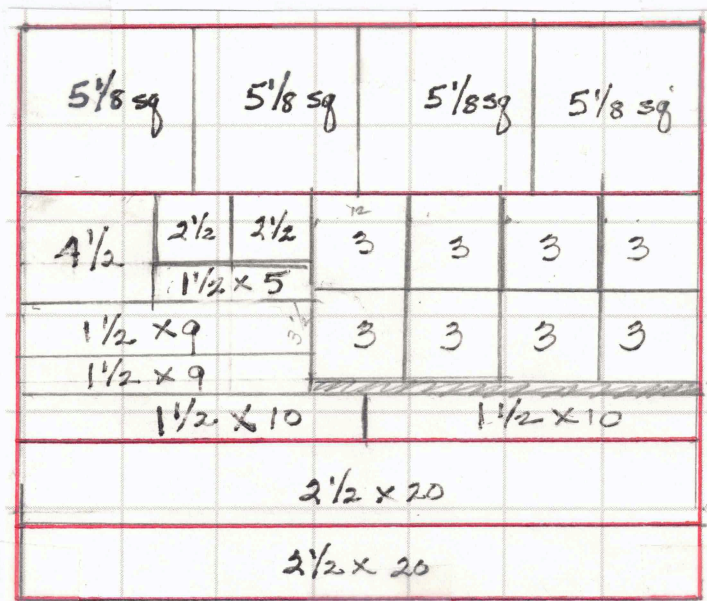 5 1/8 sq 5 1/8 sq 5 1/8 sq 5 1/8 sq
4 1/2 2 1/2 2 1/2 3 3 3 3
1 1/2 x 5
1 1/2 x 9 3 3 3 3
1 1/2 x 9
1 1/2 x 10 1 1/2 x 10
2 1/2 x 20
2 1/2 x 20